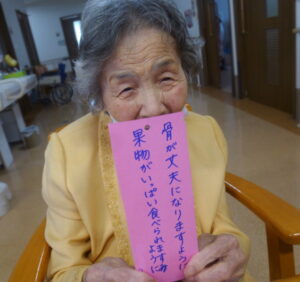 骨が丈夫になりますように
果物がいっぱい食べられます
ように